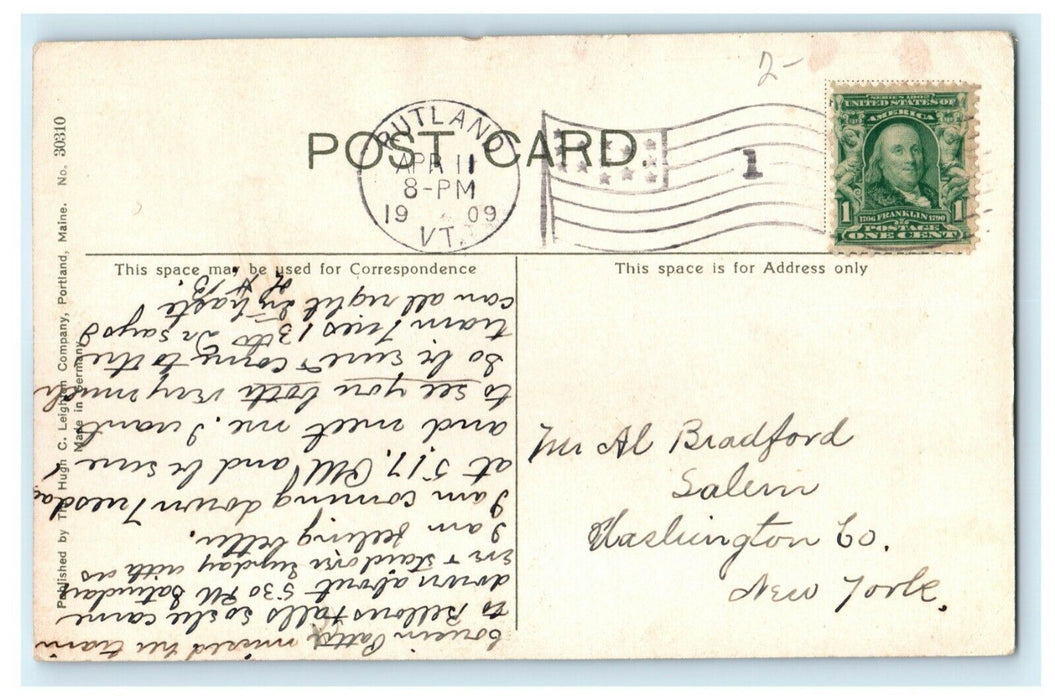 2-
POST CARD.
RUTLAND
APR 11
8-PM
19 09
VT.
1
SERIES 1902
UNITED STATES OF
AMERICA
1 1706 FRANKLIN 1790 1
POSTAGE
ONE CENT
This space may be used for Correspondence
This space is for Address only
Cousin Patta missed her train
to Bellows Falls so she came
down about 530 PM Saturday
Eve + staid over Sunday with us
I am feeling better.
I am coming down Tuesday
at 5,17, PM and be sure
and meet me. I want
to see you both very much
So be sure + come to the
train Tues 13th Dr says I
can all right In haste
of H B.
Mr Al Bradford
Salem
Washington Co.
New York.
Published by The Hugh C. Leighton Company, Portland, Maine. No. 30310
Made in Germany